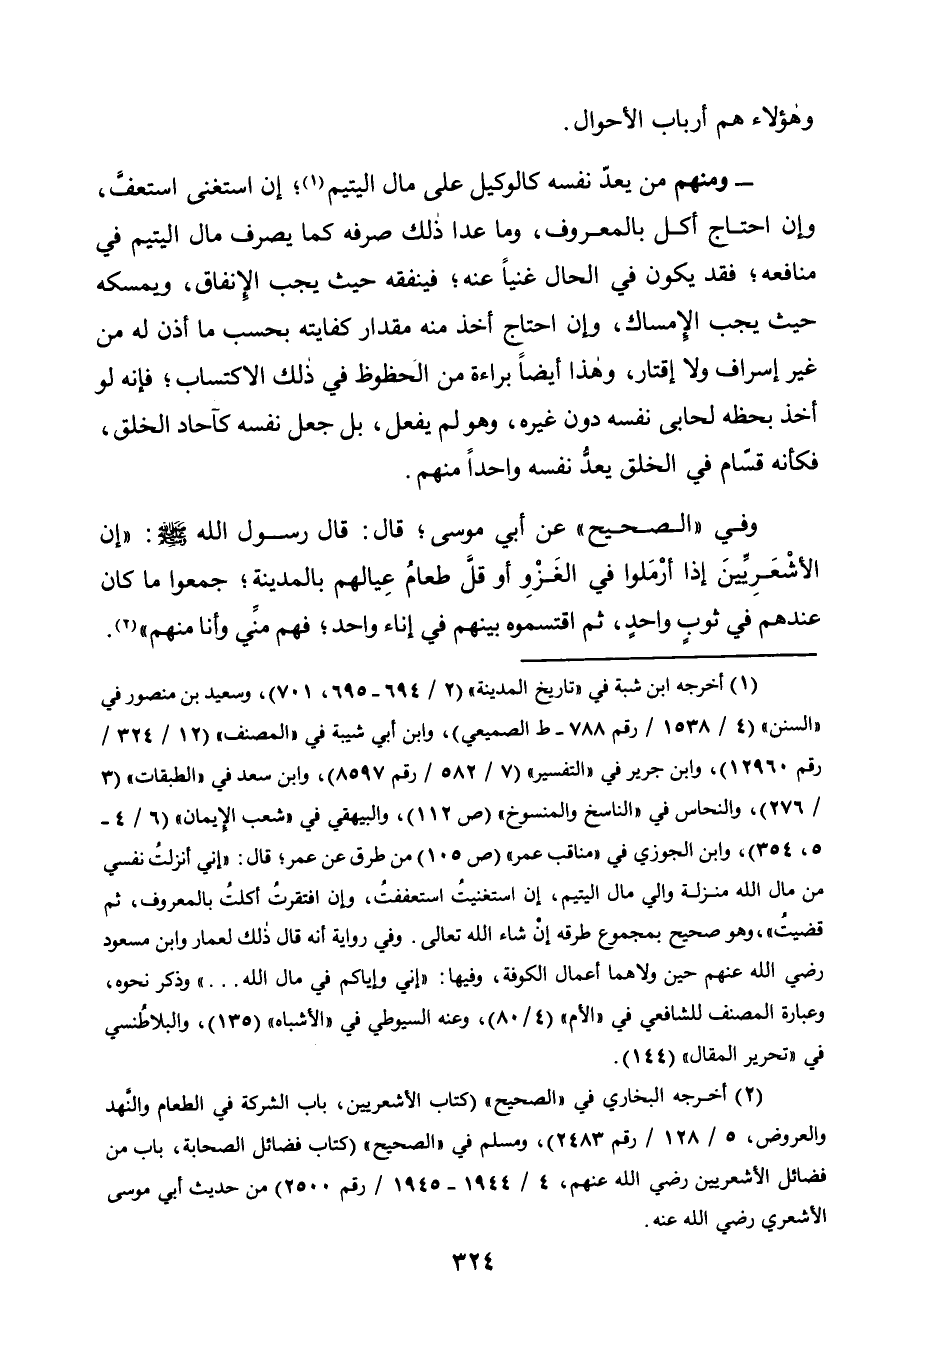 وهٰؤلاء هم أرباب الأحوال.
ـ ومنهم من يعدّ نفسه كالوكيل على مال اليتيم(١)؛ إن استغنى استعفَّ،
وإن احتاج أكل بالمعروف، وما عدا ذٰلك صرفه كما يصرف مال اليتيم في
منافعه؛ فقد يكون في الحال غنياً عنه؛ فينفقه حيث يجب الإنفاق، ويمسكه
حيث يجب الإمساك، وإن احتاج أخذ منه مقدار كفايته بحسب ما أذن له من
غير إسراف ولا إقتار، وهٰذا أيضاً براءة من الحظوظ في ذٰلك الاكتساب؛ فإنه لو
أخذ بحظه لحابى نفسه دون غيره، وهو لم يفعل، بل جعل نفسه كآحاد الخلق،
فكأنه قسّام في الخلق يعدُّ نفسه واحداً منهم.
وفي «الصحيح» عن أبي موسى؛ قال: قال رسول الله ﷺ: «إن
الأشْعَرِيِّينَ إذا أرْمَلوا في الغَزْوِ أو قلَّ طعامُ عِيالهم بالمدينة؛ جمعوا ما كان
عندهم في ثوبٍ واحدٍ، ثم اقتسموه بينهم في إناء واحد؛ فهم منِّي وأنا منهم»(٢).
(١) أخرجه ابن شبة في «تاريخ المدينة» (٢ / ٦٩٤ ـ ٦٩٥، ٧٠١)، وسعيد بن منصور في
«السنن» (٤ / ١٥٣٨ / رقم ٧٨٨ ـ ط الصميعي)، وابن أبي شيبة في «المصنف» (١٢ / ٣٢٤ /
رقم ١٢٩٦٠)، وابن جرير في «التفسير» (٧ / ٥٨٢ / رقم ٨٥٩٧)، وابن سعد في «الطبقات» (٣
/ ٢٧٦)، والنحاس في «الناسخ والمنسوخ» (ص ١١٢)، والبيهقي في «شعب الإيمان» (٦ / ٤ ـ
٥، ٣٥٤)، وابن الجوزي في «مناقب عمر» (ص ١٠٥) من طرق عن عمر؛ قال: «إني أنزلتُ نفسي
من مال الله منزلة والي مال اليتيم، إن استغنيتُ استعففتُ، وإن افتقرتُ أكلتُ بالمعروف، ثم
قضيتُ»،وهو صحيح بمجموع طرقه إنْ شاء الله تعالى. وفي رواية أنه قال ذٰلك لعمار وابن مسعود
رضي الله عنهم حين ولاهما أعمال الكوفة، وفيها: «إني وإياكم في مال الله...» وذكر نحوه،
وعبارة المصنف للشافعي في «الأم» (٤/ ٨٠)، وعنه السيوطي في «الأشباه» (١٣٥)، والبلاطُنسي
في «تحرير المقال» (١٤٤).
(٢) أخرجه البخاري في «الصحيح» (كتاب الأشعريين، باب الشركة في الطعام والنَّهد
والعروض، ٥ / ١٢٨ / رقم ٢٤٨٣)، ومسلم في «الصحيح» (كتاب فضائل الصحابة، باب من
فضائل الأشعريين رضي الله عنهم، ٤ / ١٩٤٤ ـ ١٩٤٥ / رقم ٢٥٠٠) من حديث أبي موسى
الأشعري رضي الله عنه.
٣٢٤